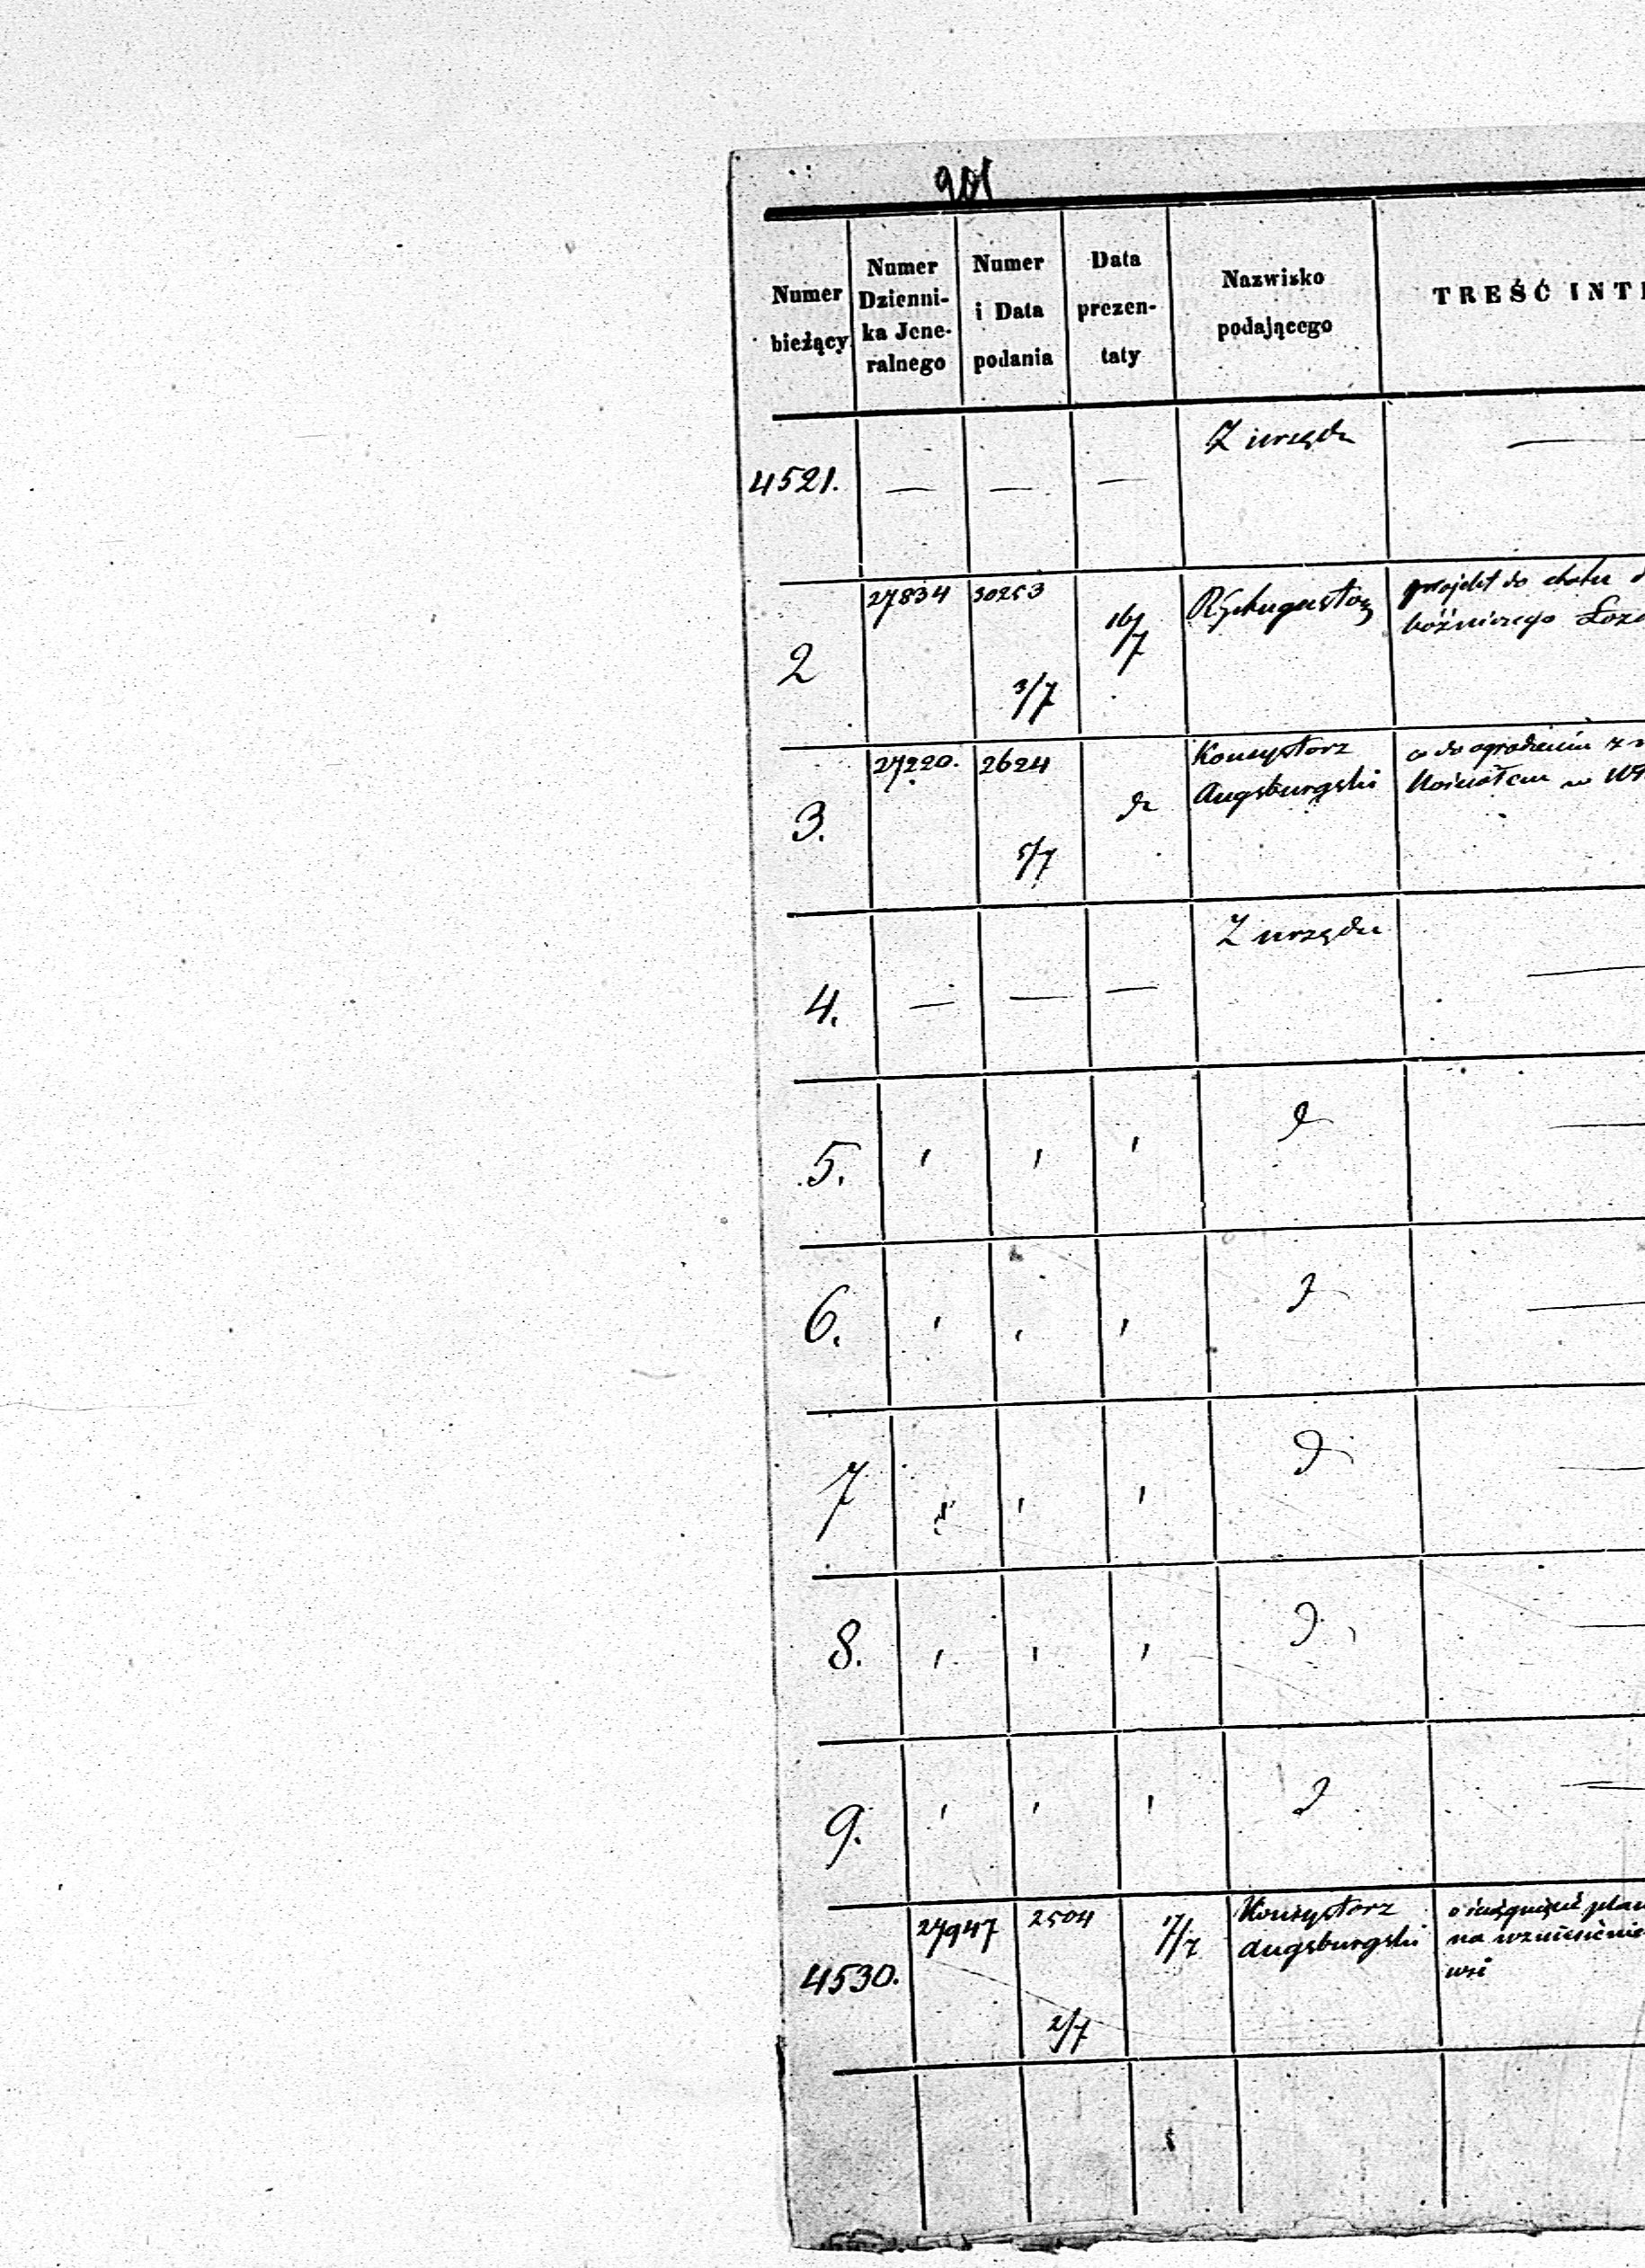 901
Numer bieżący
Numer Dzienni- ka Jene- ralnego
Numer i Data podania
Data prezen- taty
Nazwisko podającego
TREŚĆ INT
4521. — — — Z urzędu —
2 27834 30253 3/7 16/7 RG Augustow
projekt do
bóźniczego
3. 27220. 2624 5/7 do Konsystorz
Augsburgski
co do ogrodzenia
Kościołem w
4. — — — Z urzędu —
5.
6.
7
8.
9.
4530. 27947 2504 2/7 17/7 Konsystorz
Augsburgski
na wzniesienie
wsi